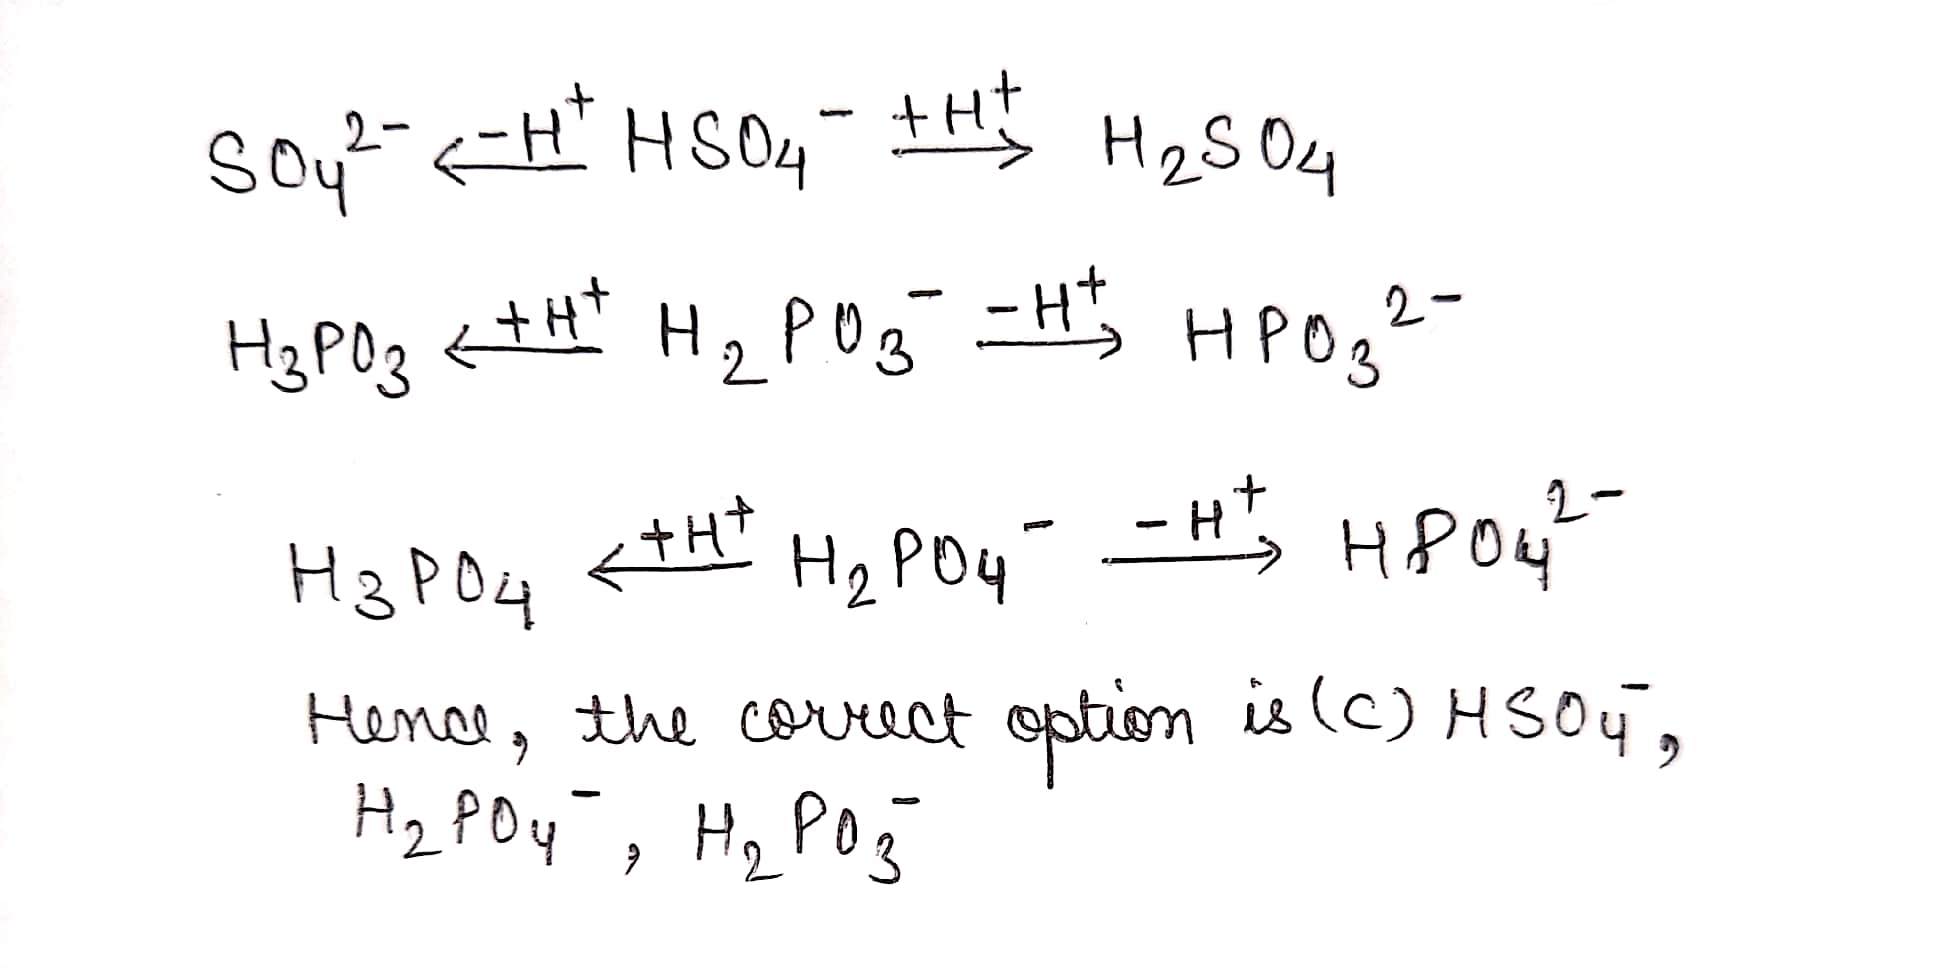 SO₄²⁻ ←(-H⁺) HSO₄⁻ (+H⁺)→ H₂SO₄
H₃PO₃ ←(+H⁺) H₂PO₃⁻ (-H⁺)→ HPO₃²⁻
H₃PO₄ ←(+H⁺) H₂PO₄⁻ (-H⁺)→ HPO₄²⁻
Hence, the correct option is (C) HSO₄⁻,
H₂PO₄⁻, H₂PO₃⁻